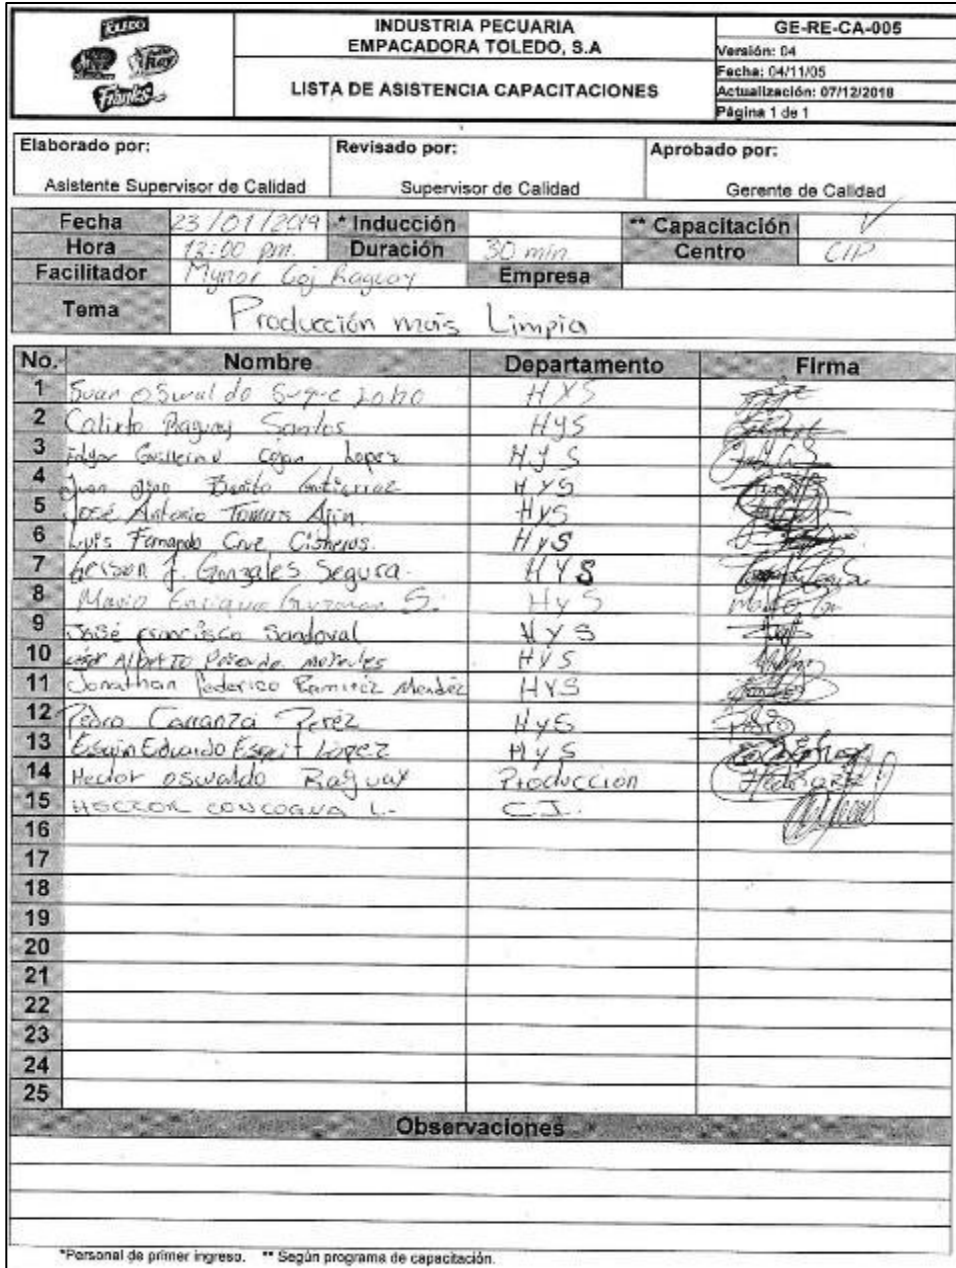 TOLEDO
INDUSTRIA PECUARIA
EMPACADORA TOLEDO, S.A
GE-RE-CA-005
Versión: 04
Fecha: 04/11/05
LISTA DE ASISTENCIA CAPACITACIONES
Actualización: 07/12/2018
Página 1 de 1
Elaborado por: Revisado por: Aprobado por:
Asistente Supervisor de Calidad Supervisor de Calidad Gerente de Calidad
Fecha 23/01/2019 * Inducción ** Capacitación ✓
Hora 12:00 pm. Duración 30 min. Centro CIP
Facilitador Mynor Coj Raguay Empresa
Tema Producción más Limpia
No. Nombre Departamento Firma
1 HYS
2 Calixto Raguay Santos HYS
3 Edgar Guillermo Lopez HYS
4 Juan Benito Gutierrez HYS
5 José Antonio Tomas Ajin. HYS
6 Luis Fernando Cruz Cisneros. HyS
7 Gerson J. Gonzales Segura. HYS
8 Mario Enrique Guzman S. HyS
9 José Francisco Sandoval HYS
10 Alberto Morales HYS
11 Jonathan Federico Ramiréz Mendéz HYS
12 Pedro Carranza Peréz HyS
13 Eduardo Esquit Lopez HyS
14 Hector oswaldo Raguay Producción
15 HECTOR L. C.I.
16
17
18
19
20
21
22
23
24
25
Observaciones
*Personal de primer ingreso. ** Según programa de capacitación.